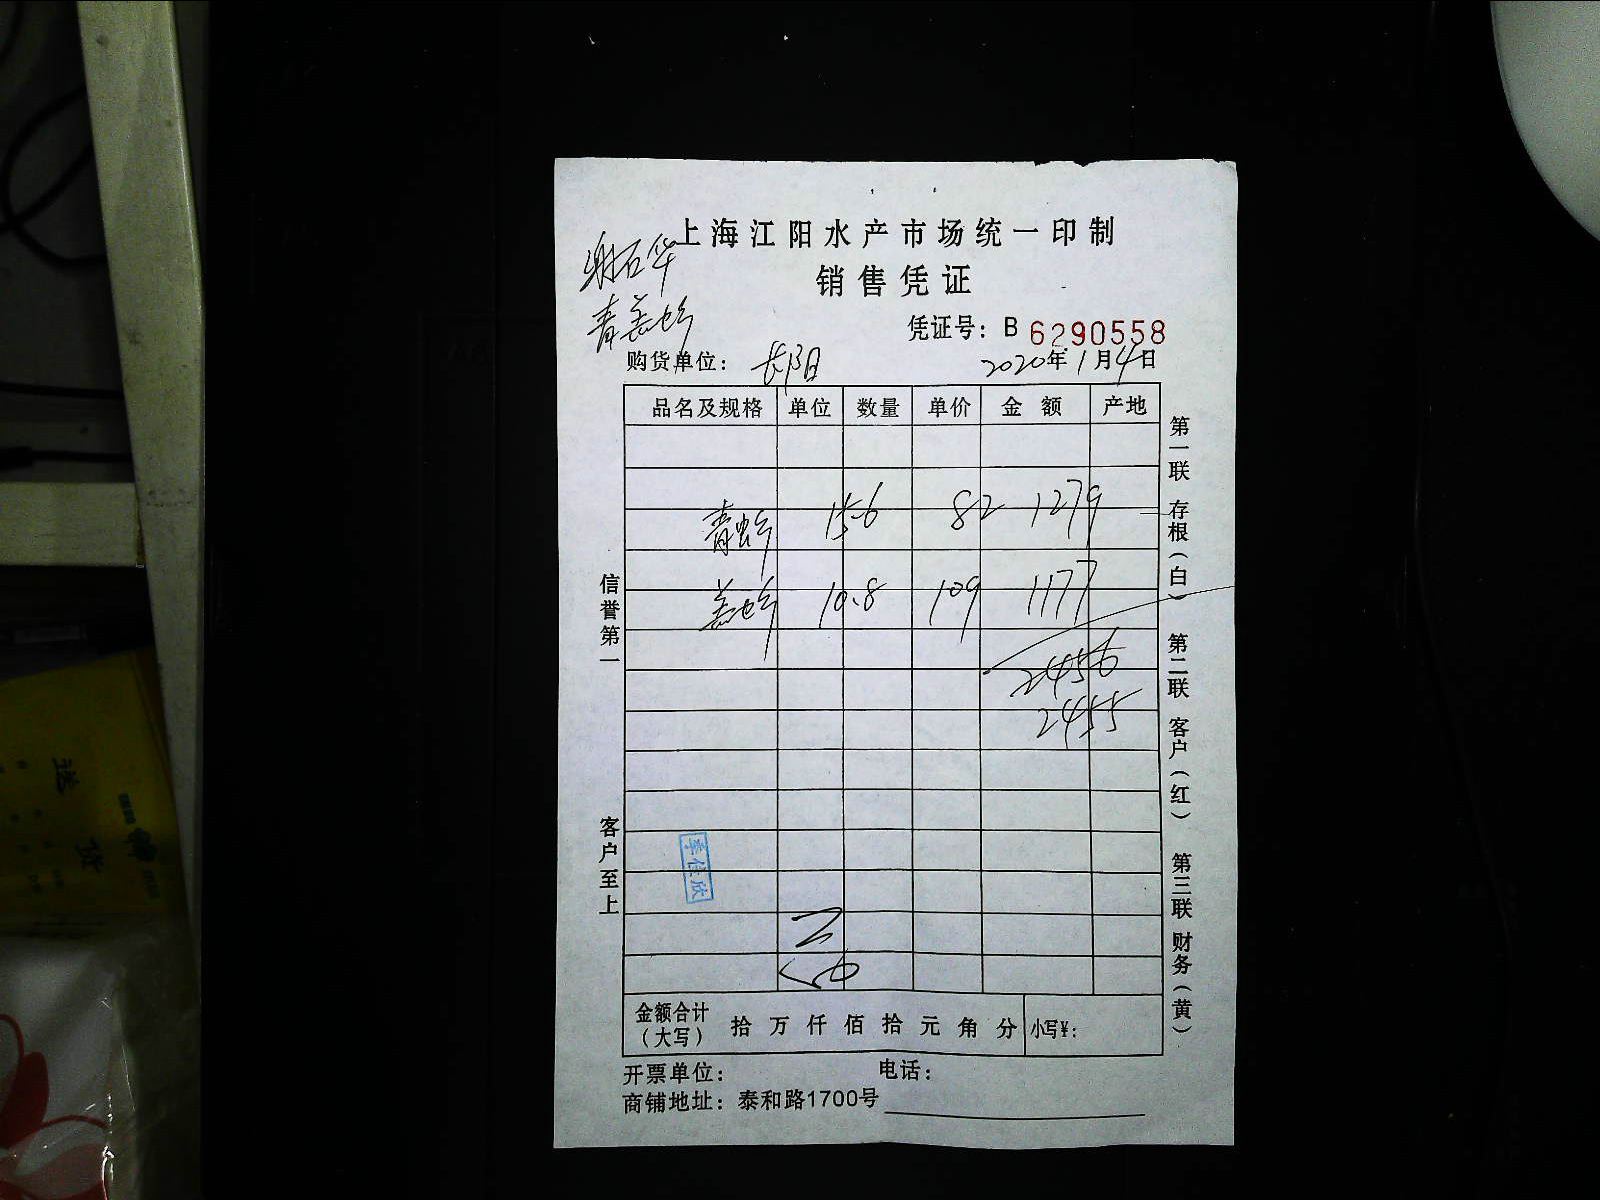 上海江阳水产市场统一印制
谢石华
销售凭证
青 盖虫乡
凭证号：B 6290558
购货单位：长阳 2020年1月4日
品名及规格 单位 数量 单价 金额 产地
青 15.6 82 1279
盖 10.8 109 1177
2456
2455
季佳欣
金额合计（大写） 拾 万 仟 佰 拾 元 角 分 小写¥：
开票单位： 电话：
商铺地址：泰和路1700号
信誉第一 客户至上
第一联 存根（白） 第二联 客户（红） 第三联 财务（黄）